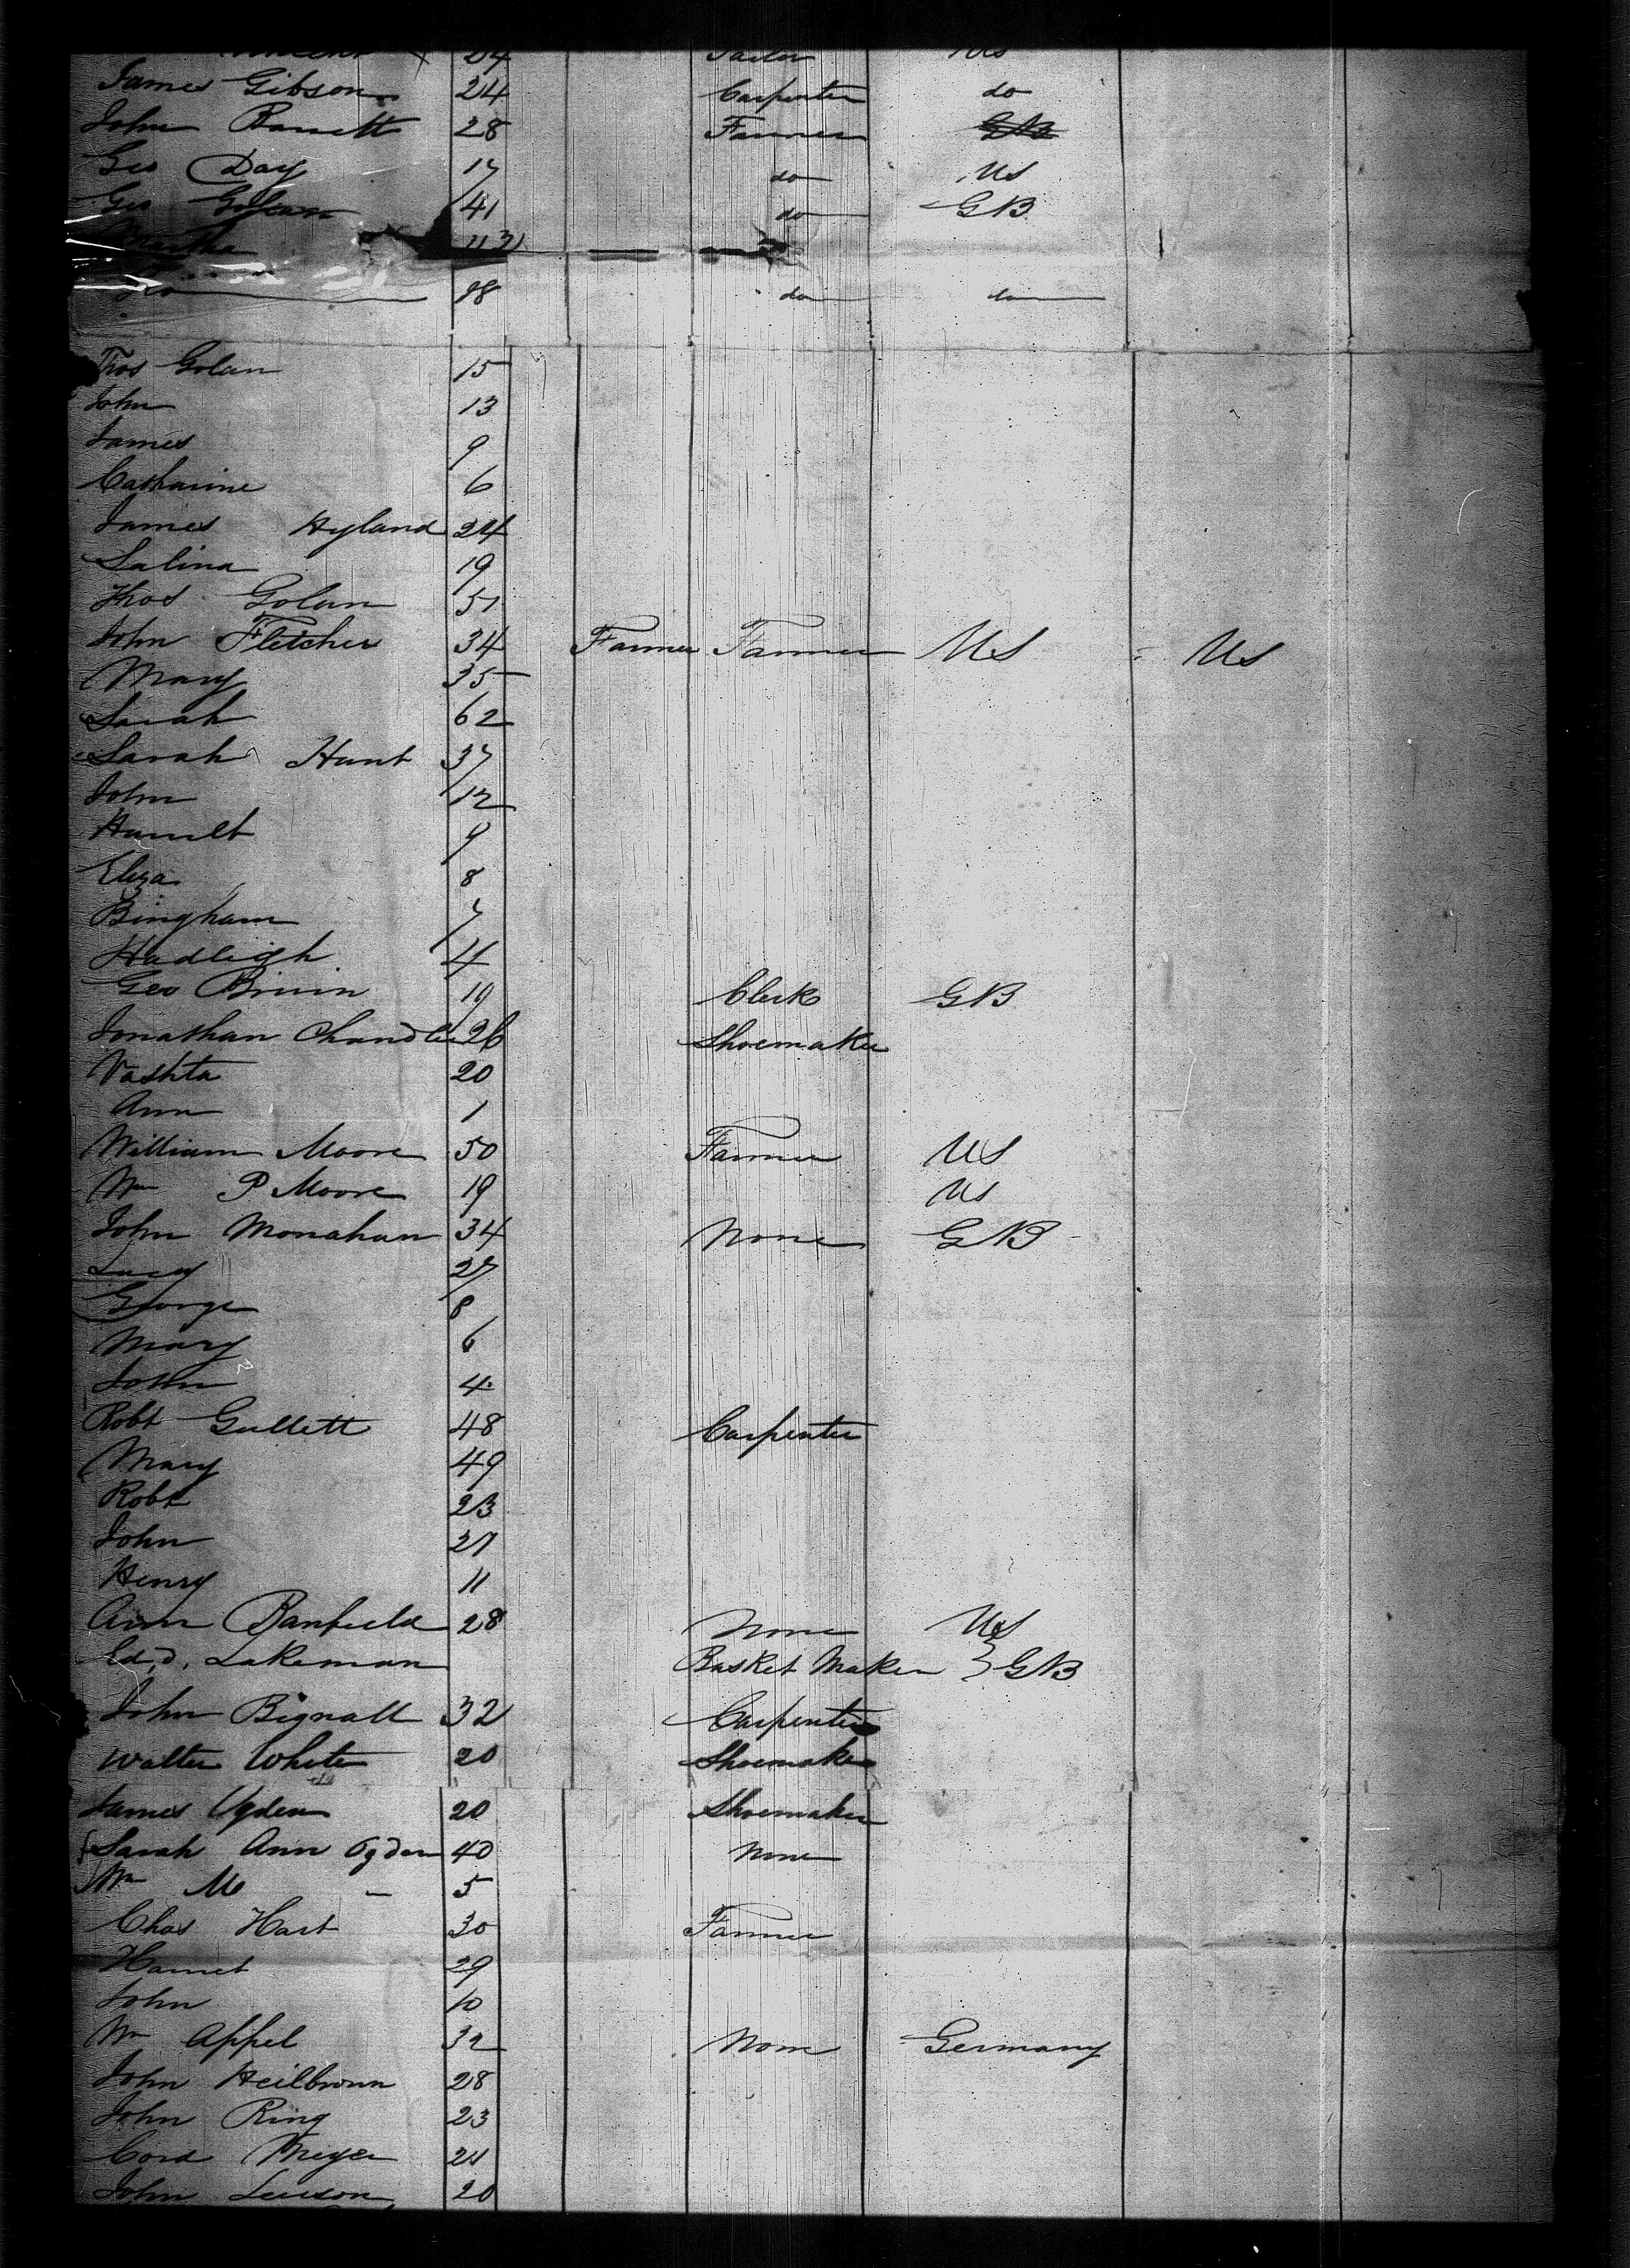 24 Tailor US
James Gibson 24 Carpenter do
John Barrett 28 Farmer GB
Geo Day 17 do US
Geo Golan 41 do GB
Martha
Geo 18 do do
Thos Golan 15
John 13
James 9
Catharine 6
James Hyland 24
Salina 19
Thos Golan 51
John Fletcher 34 Farmer Farmer US US
Mary 35
Sarah 62
Sarah Hunt 37
John 12
Harriett 9
Eliza 8
Bingham 7
Hadleigh 4
Geo 19 Clerk GB
Jonathan Chandler 26 Shoemaker
Vashta 20
Ann 1
William Moore 50 Farmer US
Wm P Moore 19 US
John Monahan 34 None GB
Lucy 27
George 8
Mary 6
John 4
Robt Gullett 48 Carpenter
Mary 49
Robt 23
John 21
Henry 11
Ann Banfield 28 None US
Edd. Lakeman Basket Maker } GB
John Bignall 32 Carpenter
Walter White 20 Shoemaker
James Ogden 20 Shoemaker
Sarah Ann Ogden 40 None
Wm M - 5
Chas Hart 30 Farmer
Harriet 29
John 10
Wm Appel 32 None Germany
John Heilbronn 28
John Ring 23
Cord Meyer 21
John 20